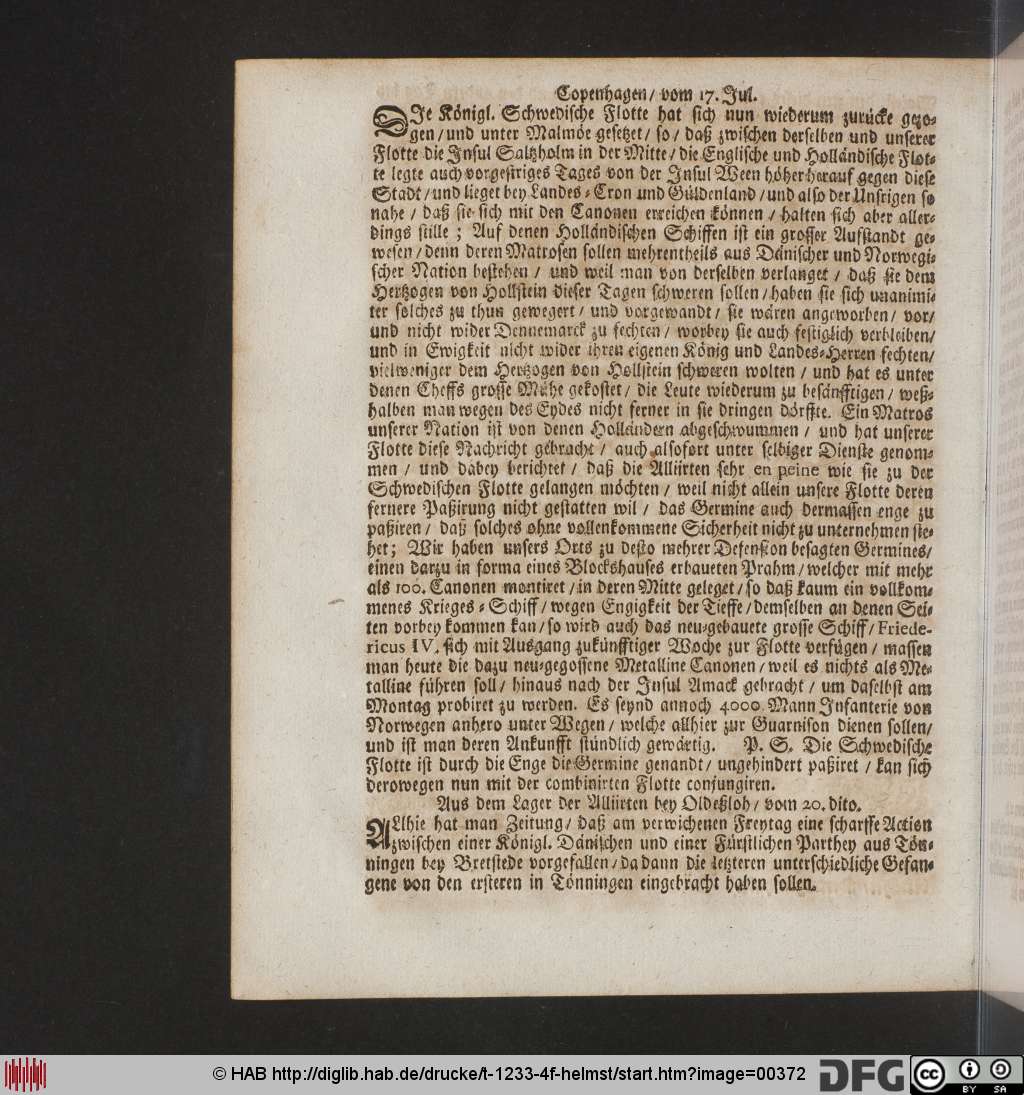 Copenhagen/ vom 17. Jul.
DIe Königl. Schwedische Flotte hat sich nun wiederum zurücke gezo-
gen/ und unter Malmöe gesetzet/ so/ daß zwischen derselben und unserer
Flotte die Insul Saltzholm in der Mitte/ die Englische und Holländische Flot-
te legte auch vorgestriges Tages von der Insul Ween höher herauf gegen diese
Stadt/ und lieget bey Landes-Cron und Güldenland/ und also der Unsrigen so
nahe/ daß sie sich mit den Canonen erreichen können/ halten sich aber aller-
dings stille; Auf denen Holländischen Schiffen ist ein grosser Aufstandt ge-
wesen/ denn deren Matrosen sollen mehrentheils aus Dänischer und Norwegi-
scher Nation bestehen/ und weil man von derselben verlanget/ daß sie dem
Hertzogen von Hollstein dieser Tagen schweren sollen/ haben sie sich unanimi-
ter solches zu thun gewegert/ und vorgewandt/ sie wären angeworben/ vor/
und nicht wider Dennemarck zu fechten/ worbey sie auch festiglich verbleiben/
und in Ewigkeit nicht wider ihren eigenen König und Landes-Herren fechten/
vielweniger dem Hertzogen von Hollstein schweren wolten/ und hat es unter
denen Cheffs grosse Mühe gekostet/ die Leute wiederum zu besänfftigen/ weß-
halben man wegen des Eydes nicht ferner in sie dringen dörffte. Ein Matros
unserer Nation ist von denen Holländern abgeschwummen/ und hat unserer
Flotte diese Nachricht gebracht/ auch alsofort unter selbiger Dienste genom-
men/ und dabey berichtet/ daß die Alliirten sehr en peine wie sie zu der
Schwedischen Flotte gelangen möchten/ weil nicht allein unsere Flotte deren
fernere Paßirung nicht gestatten wil/ das Germine auch dermassen enge zu
paßiren/ daß solches ohne vollenkommene Sicherheit nicht zu unternehmen ste-
het; Wir haben unsers Orts zu desto mehrer Defension besagten Germines/
einen darzu in forma eines Blockshauses erbaueten Prahm/ welcher mit mehr
als 100. Canonen montiret/ in deren Mitte geleget/ so daß kaum ein vollkom-
menes Krieges-Schiff/ wegen Engigkeit der Tieffe/ demselben an denen Sei-
ten vorbey kommen kan/ so wird auch das neu-gebauete grosse Schiff/ Friede-
ricus IV. sich mit Ausgang zukünfftiger Woche zur Flotte verfügen/ massen
man heute die dazu neu-gegossene Metalline Canonen/ weil es nichts als Me-
talline führen soll/ hinaus nach der Insul Amack gebracht/ um daselbst am
Montag probiret zu werden. Es seynd annoch 4000. Mann Infanterie von
Norwegen anhero unter Wegen/ welche allhier zur Guarnison dienen sollen/
und ist man deren Ankunfft stündlich gewärtig. P. S. Die Schwedische
Flotte ist durch die Enge die Germine genandt/ ungehindert paßiret/ kan sich
derowegen nun mit der combinirten Flotte conjungiren.
Aus dem Lager der Alliirten bey Oldeßloh/ vom 20. dito.
ALlhie hat man Zeitung/ daß am verwichenen Freytag eine scharffe Action
zwischen einer Königl. Dänischen und einer Fürstlichen Parthey aus Tön-
ningen bey Bretstede vorgefallen/ da dann die letzteren unterschiedliche Gefan-
gene von den ersteren in Tönningen eingebracht haben sollen.
© HAB http://diglib.hab.de/drucke/t-1233-4f-helmst/start.htm?image=00372
DFG
cc BY SA